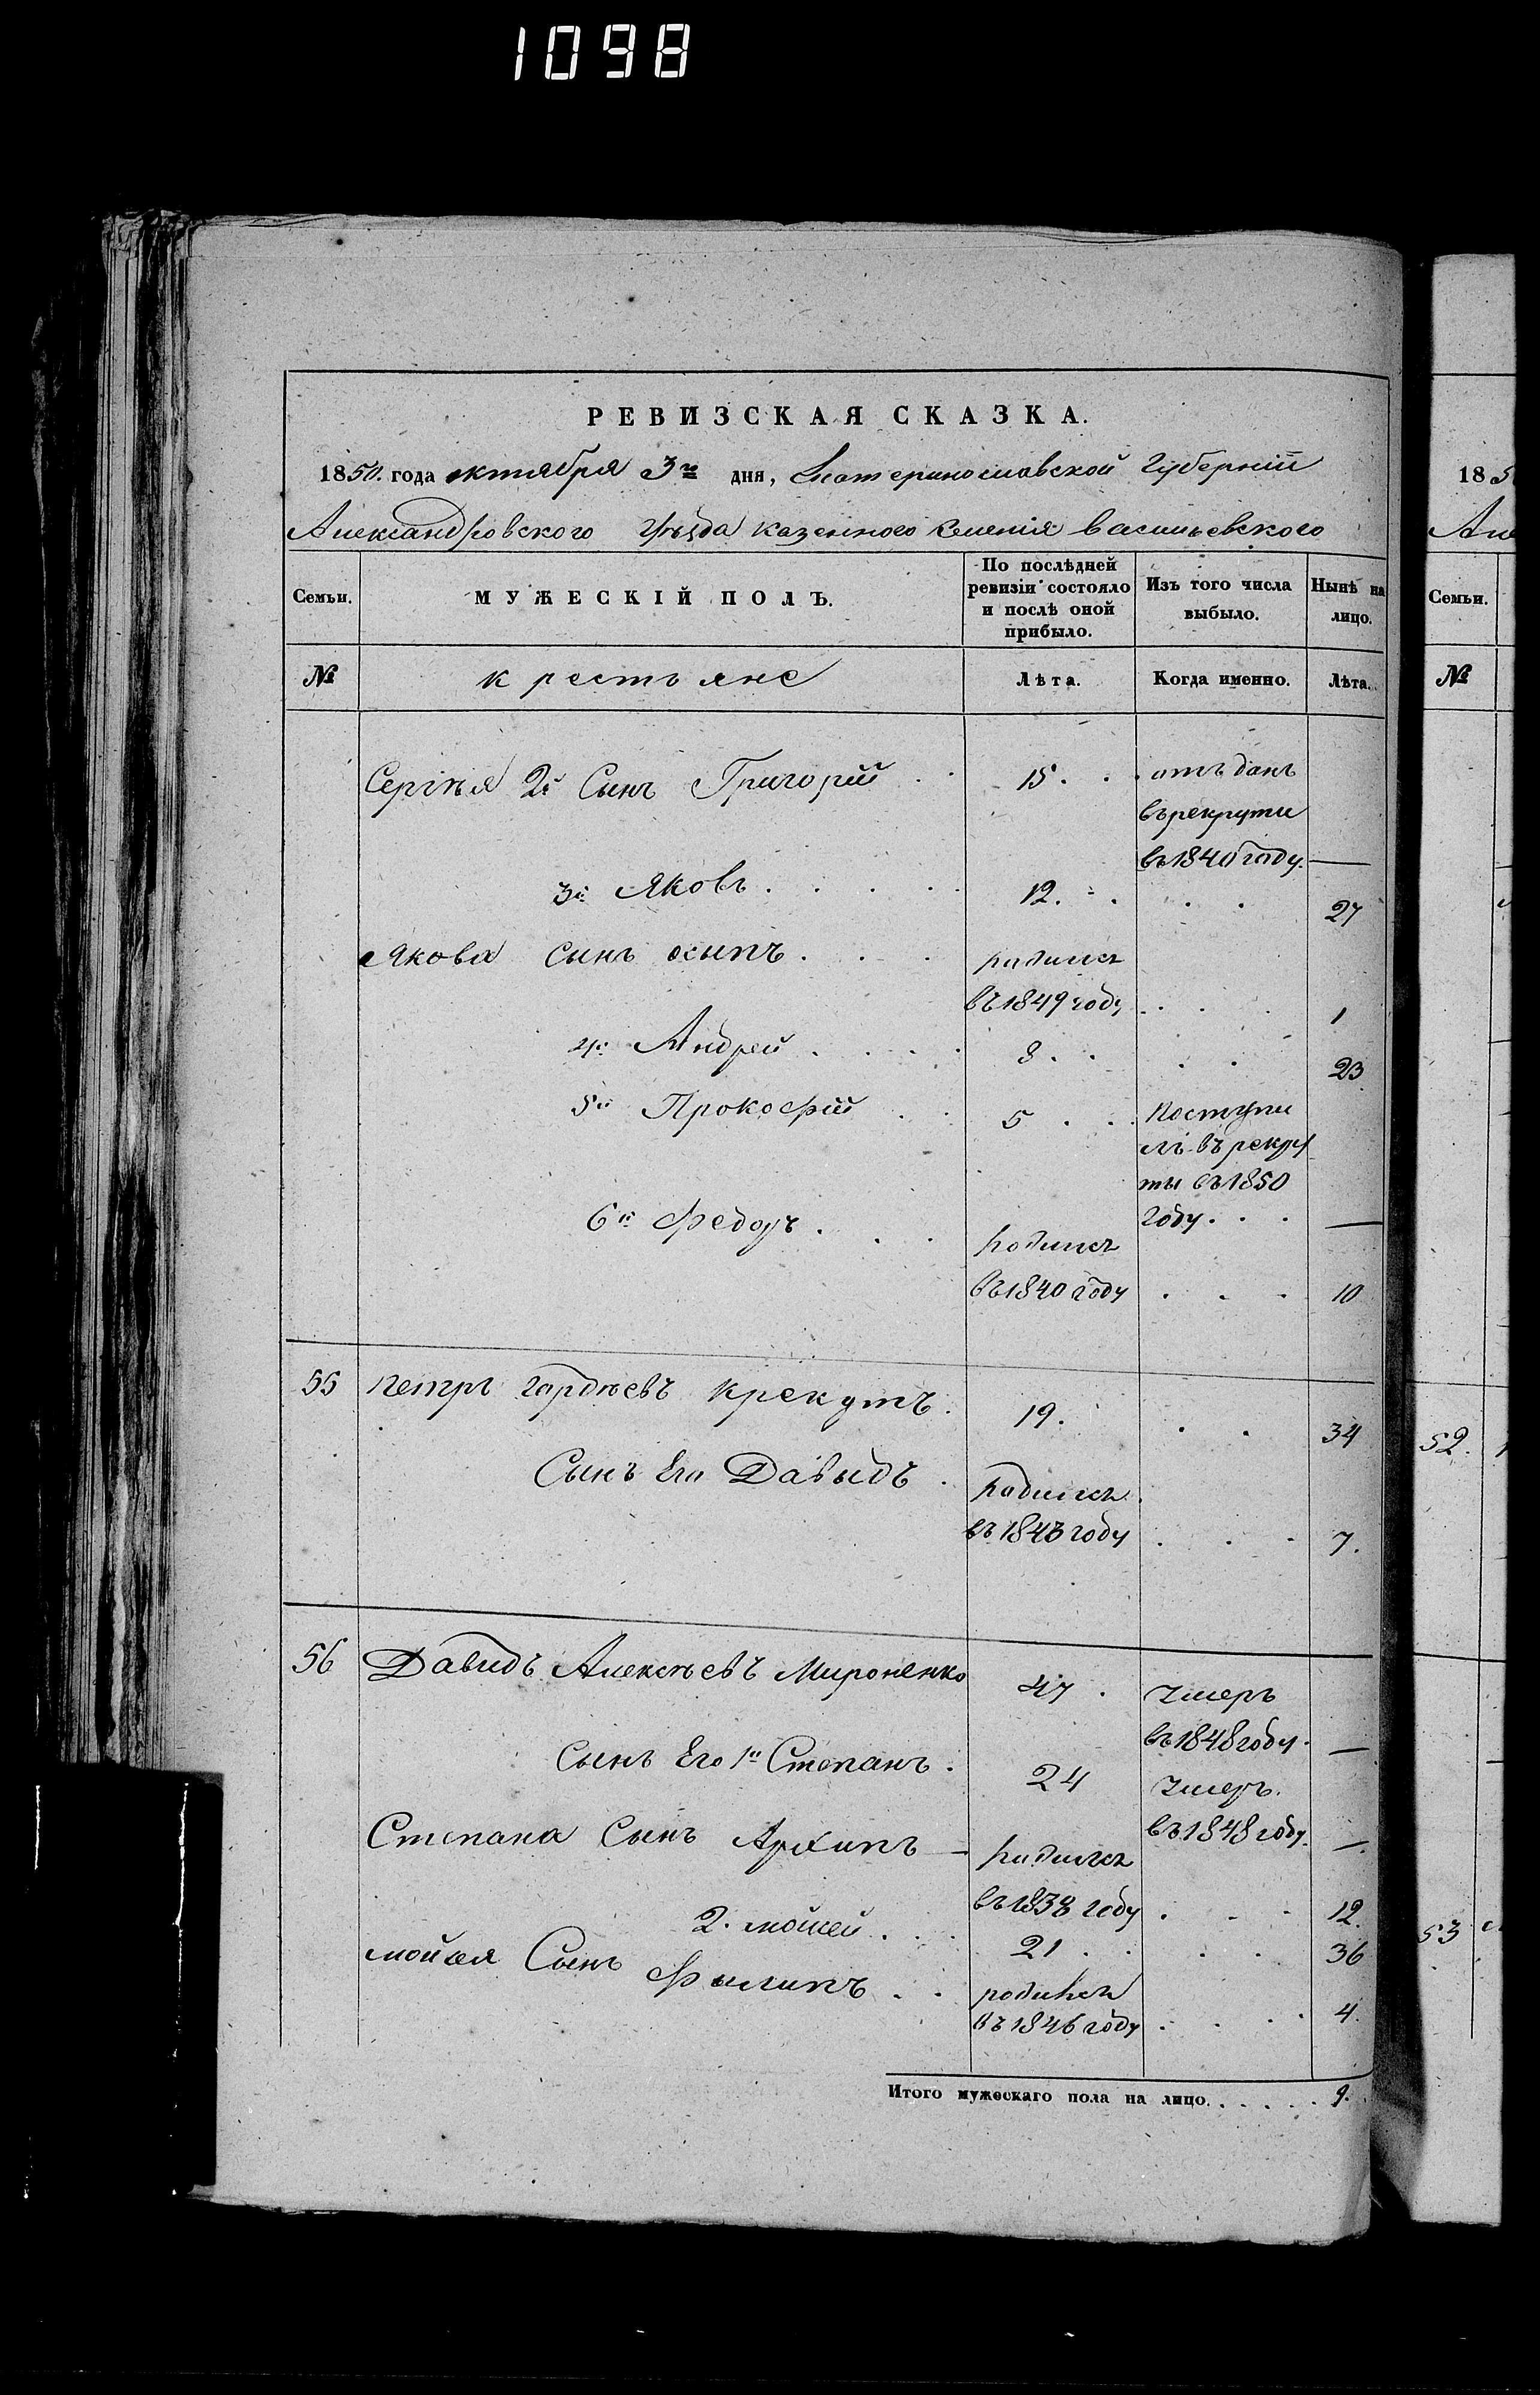 1098
РЕВИЗСКАЯ СКАЗКА.
1850. года октября 3го дня, Екатеринославской Губерніи
Александровского Уѣзда казенного селенія васильевского
Семьи. МУЖЕСКІЙ ПОЛЪ. По послѣдней ревизіи состояло и послѣ оной прибыло. Изъ того числа выбыло. Нынѣ на лицо.
№ крестьяне Лѣта. Когда именно. Лѣта.
Сергѣя 2й Сынъ Григорій 15. отъданъ
върекруты
въ1840 году. —
3й Яковъ 12. 27
Якова сынъ осипъ родился
въ1849 году 1
4й Андрей 8 23
5й Прокофій 5 Поступи
лъ въ рекру
ты въ1850
году —
6й Федоръ родился
въ1840 году 10
55 петръ гордѣевъ крекутъ 19. 34
Сынъ Его Давыдъ родился
въ 1843 году 7.
56 Давидъ Алексѣевъ Мироненко 47. Умеръ
въ1848 году —
сынъ Его 1й Степанъ 24 Умеръ
въ1848 году —
Степана Сынъ Архипъ — родился
въ1838 году 12.
2. мойсей 21 36
мойсея Сынъ Филипъ родился
въ 1846 году 4.
Итого мужескаго пола на лицо 9.
185
Але
Семьи.
№
52.
53